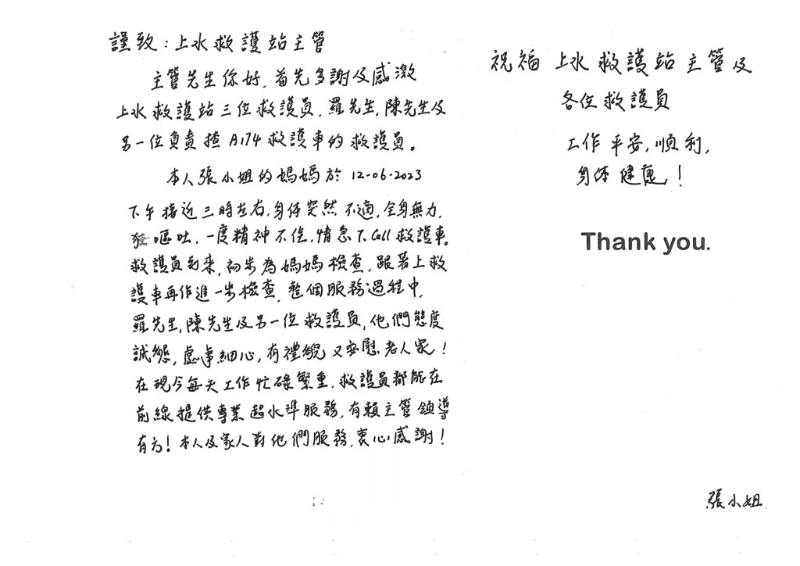 謹致：上水救護站主管
主管先生你好，首先多謝及感激
上水救護站三位救護員，羅先生，陳先生及
另一位負責揸A174救護車的救護員。
本人張小姐的媽媽於12-06-2023
下午接近三時左右，身体突然不適，全身無力，
嘔吐，一度精神不佳，情急下Call救護車。
救護員到來，初步為媽媽檢查，跟著上救
護車再作進一步檢查，整個服務過程中，
羅先生，陳先生及另一位救護員，他們態度
誠懇，處事細心，有禮貌又安慰老人家！
在現今每天工作忙碌繁重，救護員都能在
前線提供專業超水準服務，有賴主管領導
有方！本人及家人對他們服務，衷心感謝！
祝福上水救護站主管及
各位救護員
工作平安，順利，
身体健康！
Thank you.
張小姐